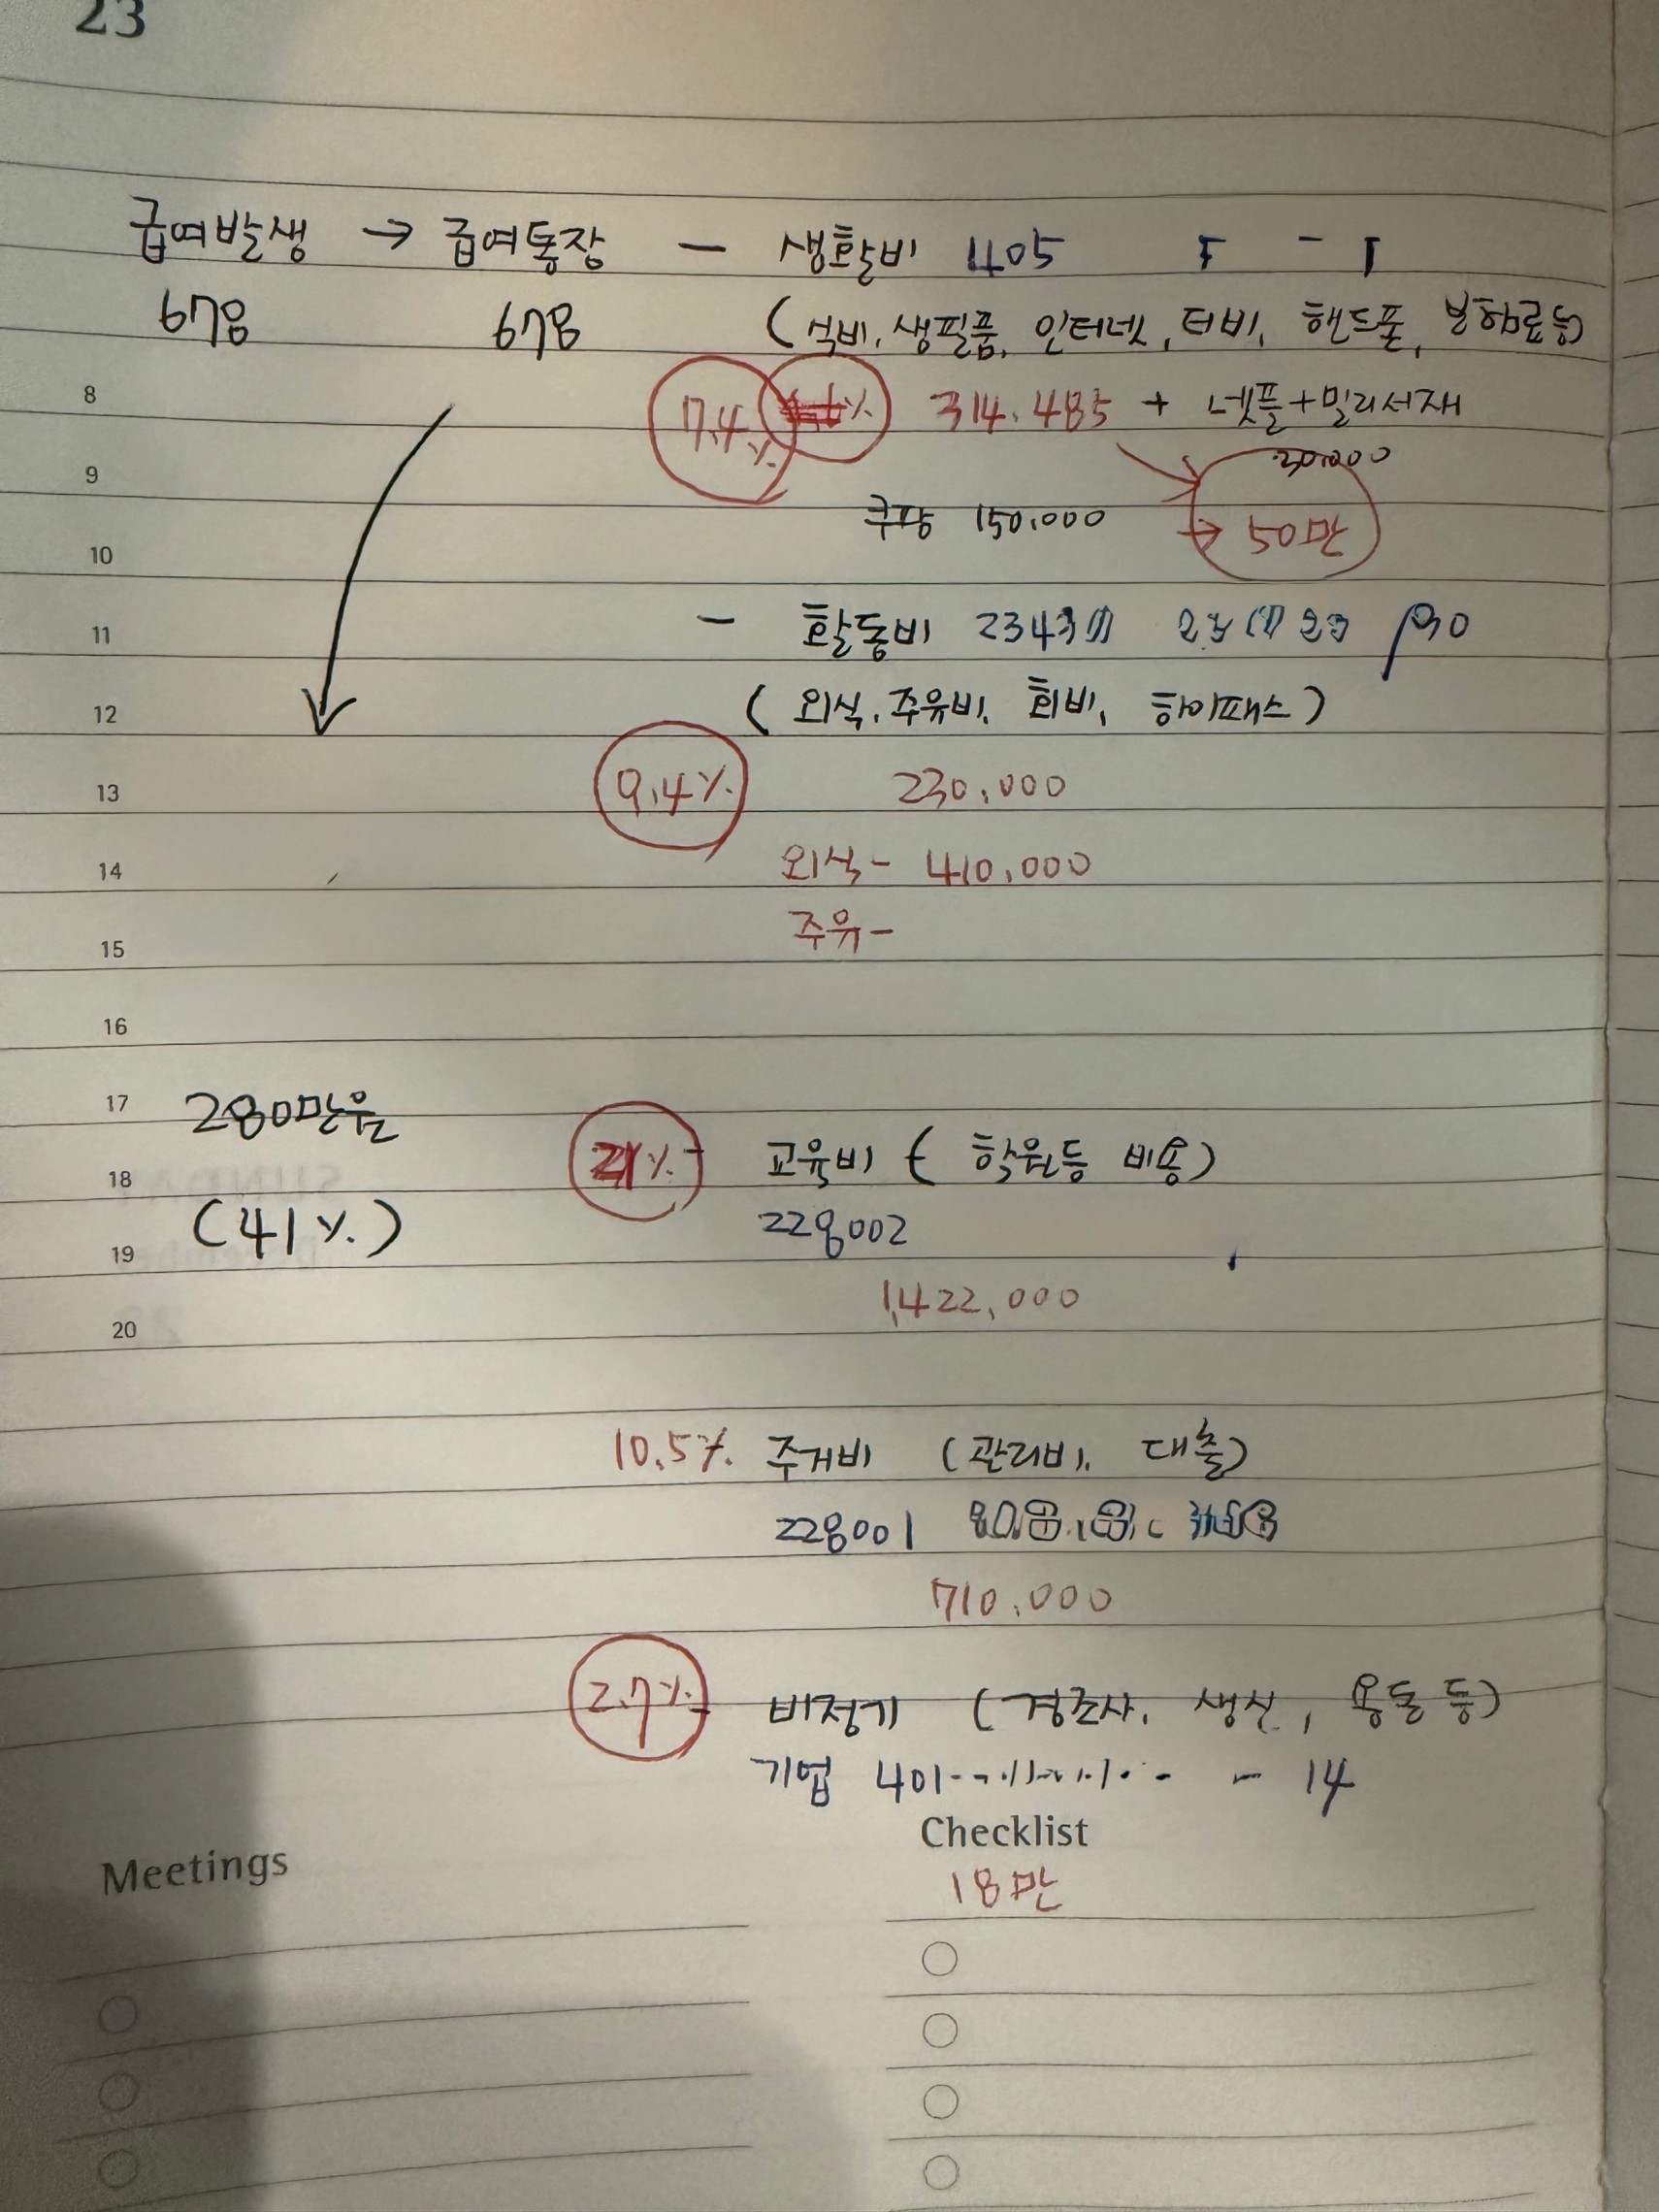 23
급여발생 → 급여통장 - 생활비 1405
678 678 (식비, 생필품, 인터넷, 티비, 핸드폰, 보험료등)
8 17.4% % 314.485 + 넷플+밀리서재
9 30.000
쿠팡 150.000
10
11 - 활동비
12 (외식, 주유비, 회비, 하이패스)
13 9.4% 230.000
14 외식 - 410.000
15 주유 -
16
17 280만원
18 21% - 교육비 ( 학원등 비용)
19 (41%) 228002
20 1,422,000
10.5% 주거비 (관리비, 대출)
228001
710.000
2.7% - 비정기 (경조사, 생신, 용돈 등)
기업 401 - 14
Meetings Checklist
18만